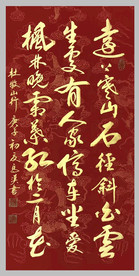 遠上寒山石徑斜白雲
生處有人家停車坐愛
楓林晚霜葉紅於二月花
杜牧山行 庚子初夏 書